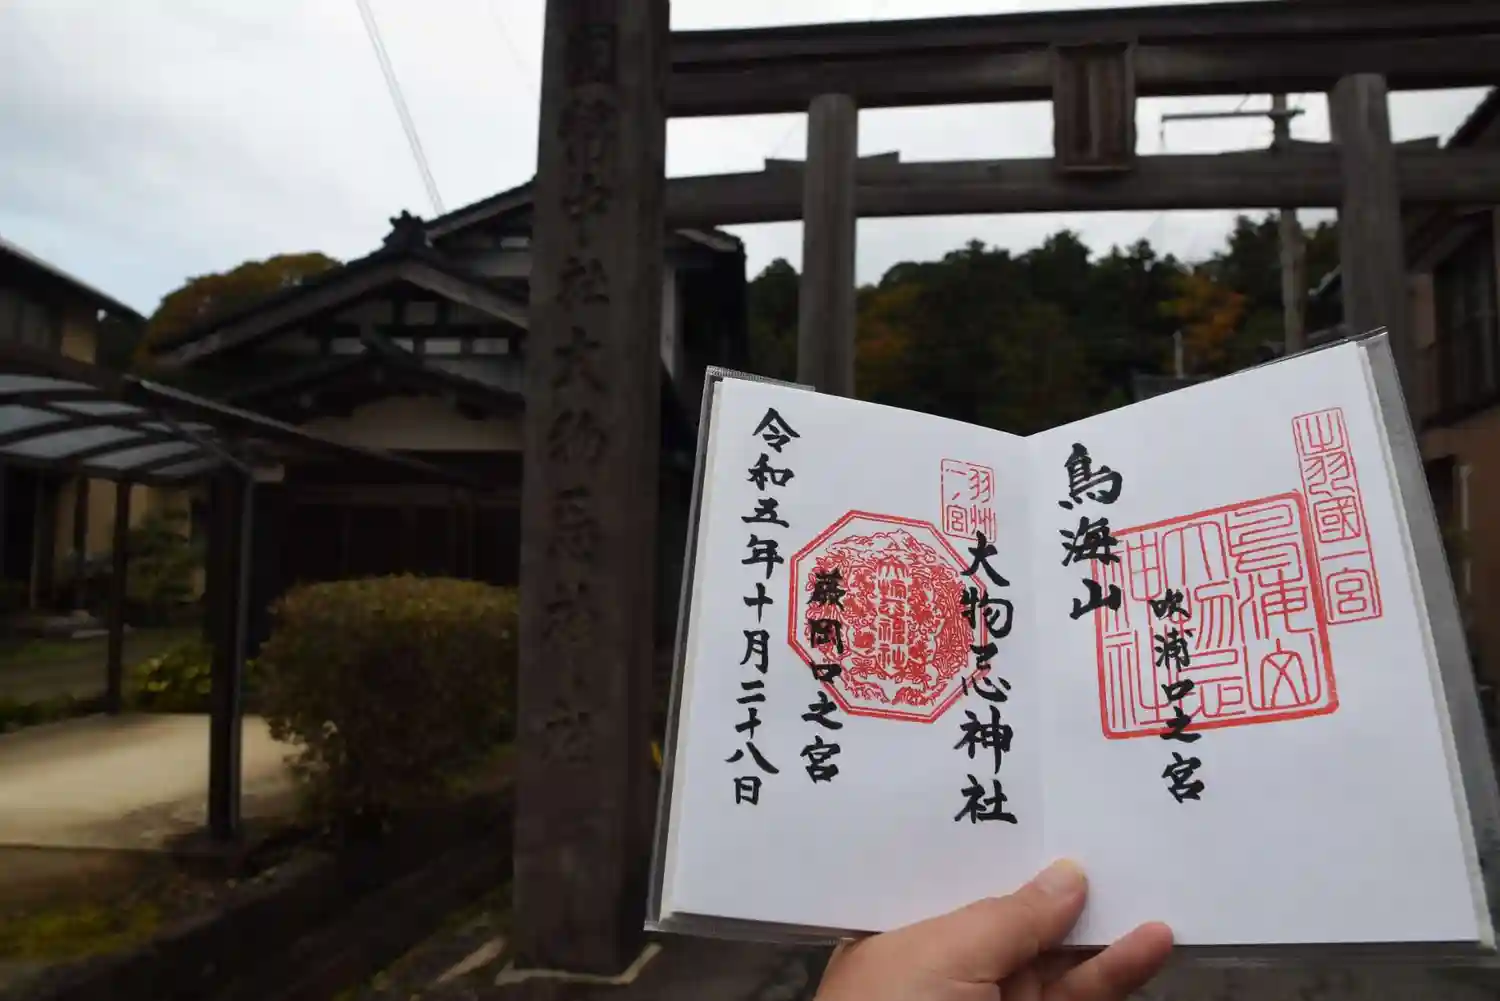 国幣中社大物忌神社
出羽國一宮
鳥海山
鳥海山
大物忌
神社
吹浦口之宮
羽州
一ノ宮
大物忌神社
大物忌神社
蕨岡口之宮
令和五年十月二十八日